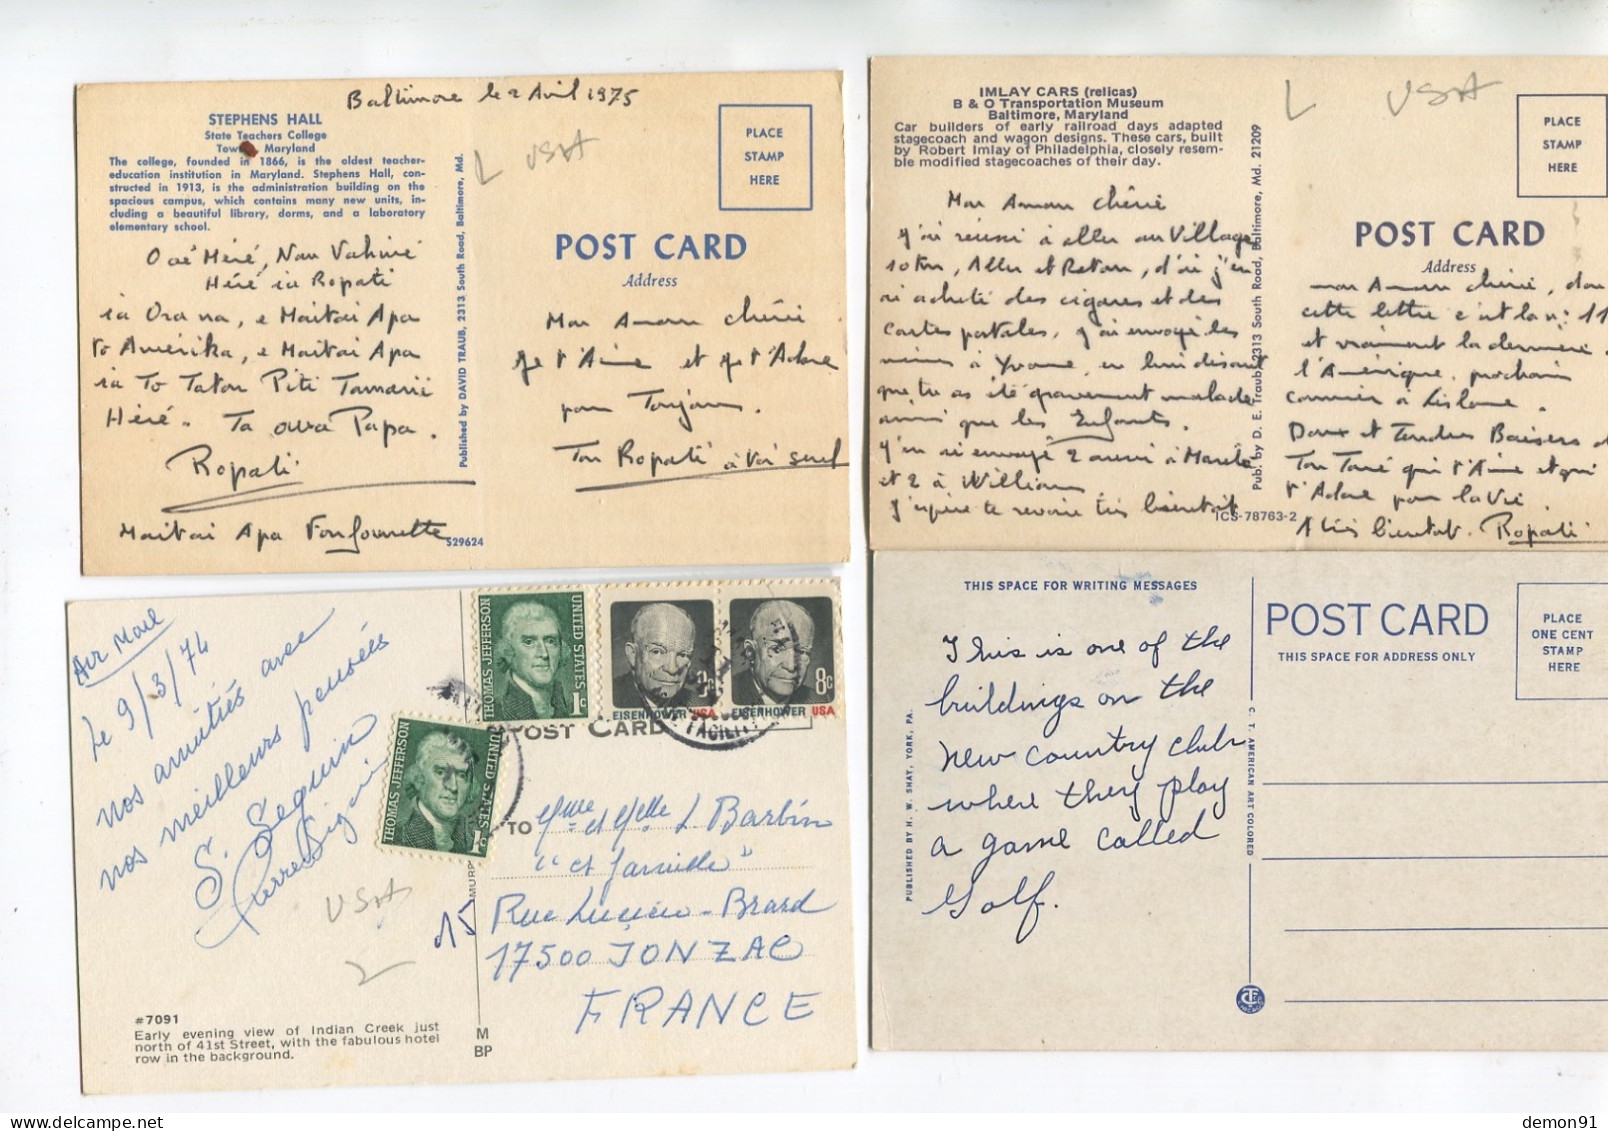 Baltimore le 2 Avril 1975
STEPHENS HALL
State Teachers College
Maryland
The college, founded in 1866, is the oldest teacher-
education institution in Maryland. Stephens Hall, con-
structed in 1913, is the administration building on the
spacious campus, which contains many new units, in-
cluding a beautiful library, dorms, and a laboratory
elementary school.
USA
PLACE
STAMP
HERE
Published by DAVID TRAUB, 2313 South Road, Baltimore, Md.
POST CARD
Address
Héré ia Ropati
ia Ora na, e Maitai Apa
to Amérika, e Maitai Apa
ia To Tatou Piti Tamarii
Héré. Ta oura Papa.
Ropati
Maitai Apa Fonfounette
S29624
Mon Amour chérie
Je t'Aime et je t'Adore
pour Toujours.
Ton Ropati à Toi seul
IMLAY CARS (relicas)
B & O Transportation Museum
Baltimore, Maryland
Car builders of early railroad days adapted
stagecoach and wagon designs. These cars, built
by Robert Imlay of Philadelphia, closely resem-
ble modified stagecoaches of their day.
USA
PLACE
STAMP
HERE
Pub. by D. E. Traub, 2313 South Road, Baltimore, Md. 21209
POST CARD
Address
Mon Amour chérie
j'ai réussi à aller au Village
Aller et Retour, d'où j'en
ai acheté des cigares et des
cartes postales, j'ai envoyé les
miens à Yvonne, en lui disant
que tu as été gravement malade
ainsi que les Enfants.
j'en ai envoyé 2 aussi à
et 2 à William
j'espère te revoir très bientôt
ICS-78763-2
mon Amour chérie,
cette lettre c'est la n: 11
et vraiment la dernière
l'Amérique, prochain
courrier à Lisbonne.
Doux et Tendres Baisers
Ton Tané qui t'Aime et qui
t'Adore pour la Vie
A très bientôt. Ropati
Air Mail
Le 9/3/74
nos amitiés avec
nos meilleurs pensées
S. Seguin
Pierre
USA
15
THOMAS JEFFERSON
UNITED STATES
1c
EISENHOWER USA
EISENHOWER USA
8c
FACILITY
THOMAS JEFFERSON
UNITED STATES
1c
POST CARD
TO
Mme et Melle L Barbin
"et famille"
Rue Lucien-Brard
17500 JONZAC
FRANCE
#7091
Early evening view of Indian Creek just
north of 41st Street, with the fabulous hotel
row in the background.
M
BP
THIS SPACE FOR WRITING MESSAGES
POST CARD
THIS SPACE FOR ADDRESS ONLY
PLACE
ONE CENT
STAMP
HERE
This is one of the
buildings on the
new country club
where they play
a game called
Golf.
PUBLISHED BY H. W. SHAY, YORK, PA.
C. T. AMERICAN ART COLORED
demon91